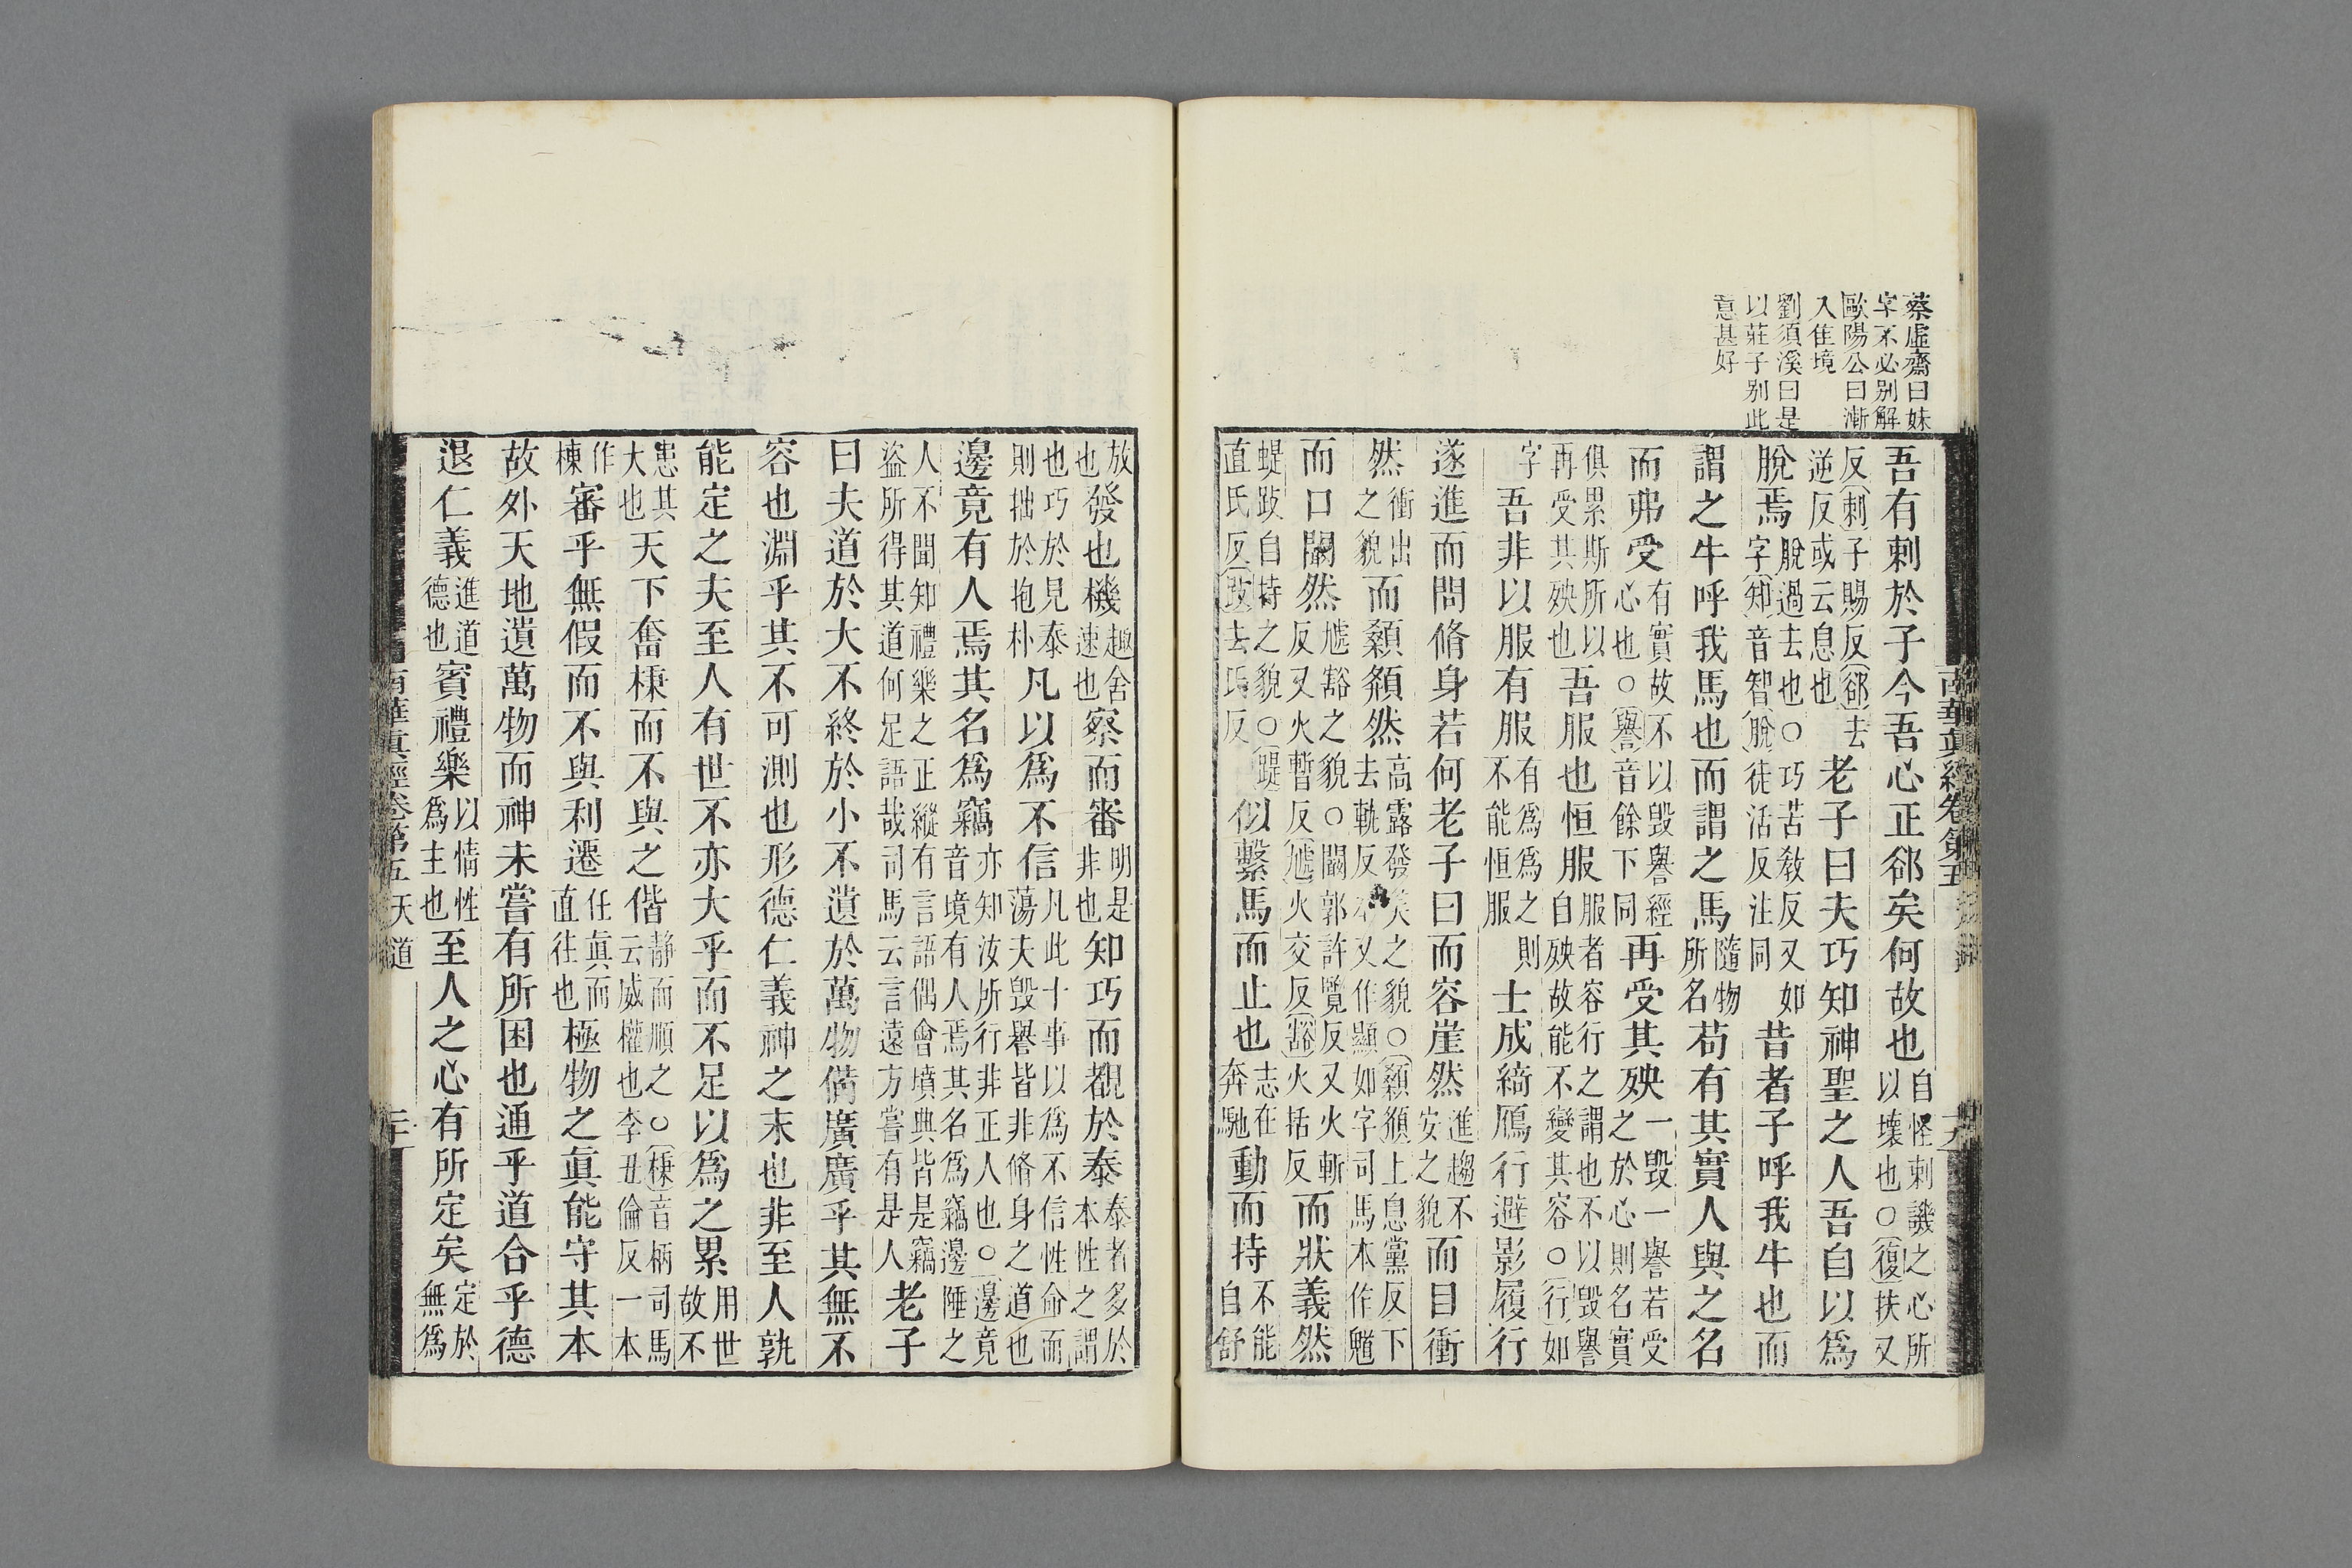 蔡虛齋曰妹
字不必別解
歐陽公曰漸
入佳境
劉須溪曰是
以莊子別此
意甚好
吾有刺於子今吾心正郤矣何故也自怪刺譏之心所以壞也○復扶又
反刺子賜反郤去逆反或云息也老子曰夫巧知神聖之人吾自以爲
脫焉脫過去也○巧苦教反又如字知音智脫徒活反注同昔者子呼我牛也而
謂之牛呼我馬也而謂之馬隨物所名苟有其實人與之名
而弗受有實故不以毀譽經心也○譽音餘下同再受其殃一毀一譽若受之於心則名實
俱累斯所以再受其殃也吾服也恒服服者容行之謂也不以毀譽自殃故能不變其容○行如
字吾非以服有服有爲爲之則不能恒服士成綺鴈行避影履行
遂進而問脩身若何老子曰而容崖然進趨不安之貌而目衝
然衝出之貌而顙頯然高露發美之貌○顙頯上息黨反下去軌反本又作顯如字司馬本作魋
而口闞然虓豁之貌○闞郭許覽反又火斬反又火暫反虓火交反豁火括反而狀義然
踶跂自持之貌○踶直氏反跂去氏反似繫馬而止也志在奔馳動而持不能自舒
南華眞經卷第五
放也發也機趣舍速也察而審明是非也知巧而覩於泰泰者多於本性之謂
也巧於見泰則拙於抱朴凡以爲不信凡此十事以爲不信性命而蕩夫毀譽皆非脩身之道也
邊竟有人焉其名爲竊亦知汝所行非正人也○邊竟音境有人焉其名爲竊邊陲之
人不聞知禮樂之正縱有言語偶會墳典皆是竊盜所得其道何足語哉司馬云言遠方嘗有是人老子
曰夫道於大不終於小不遺於萬物備廣廣乎其無不
容也淵乎其不可測也形德仁義神之末也非至人孰
能定之夫至人有世不亦大乎而不足以爲之累用世故不
患其大也天下奮棅而不與之偕靜而順之○棅音柄司馬云威權也李丑倫反一本
作棟審乎無假而不與利遷任眞而直往也極物之眞能守其本
故外天地遺萬物而神未嘗有所困也通乎道合乎德
退仁義進道德也賓禮樂以情性爲主也至人之心有所定矣定於無爲
南華眞經卷第五 天道 二十